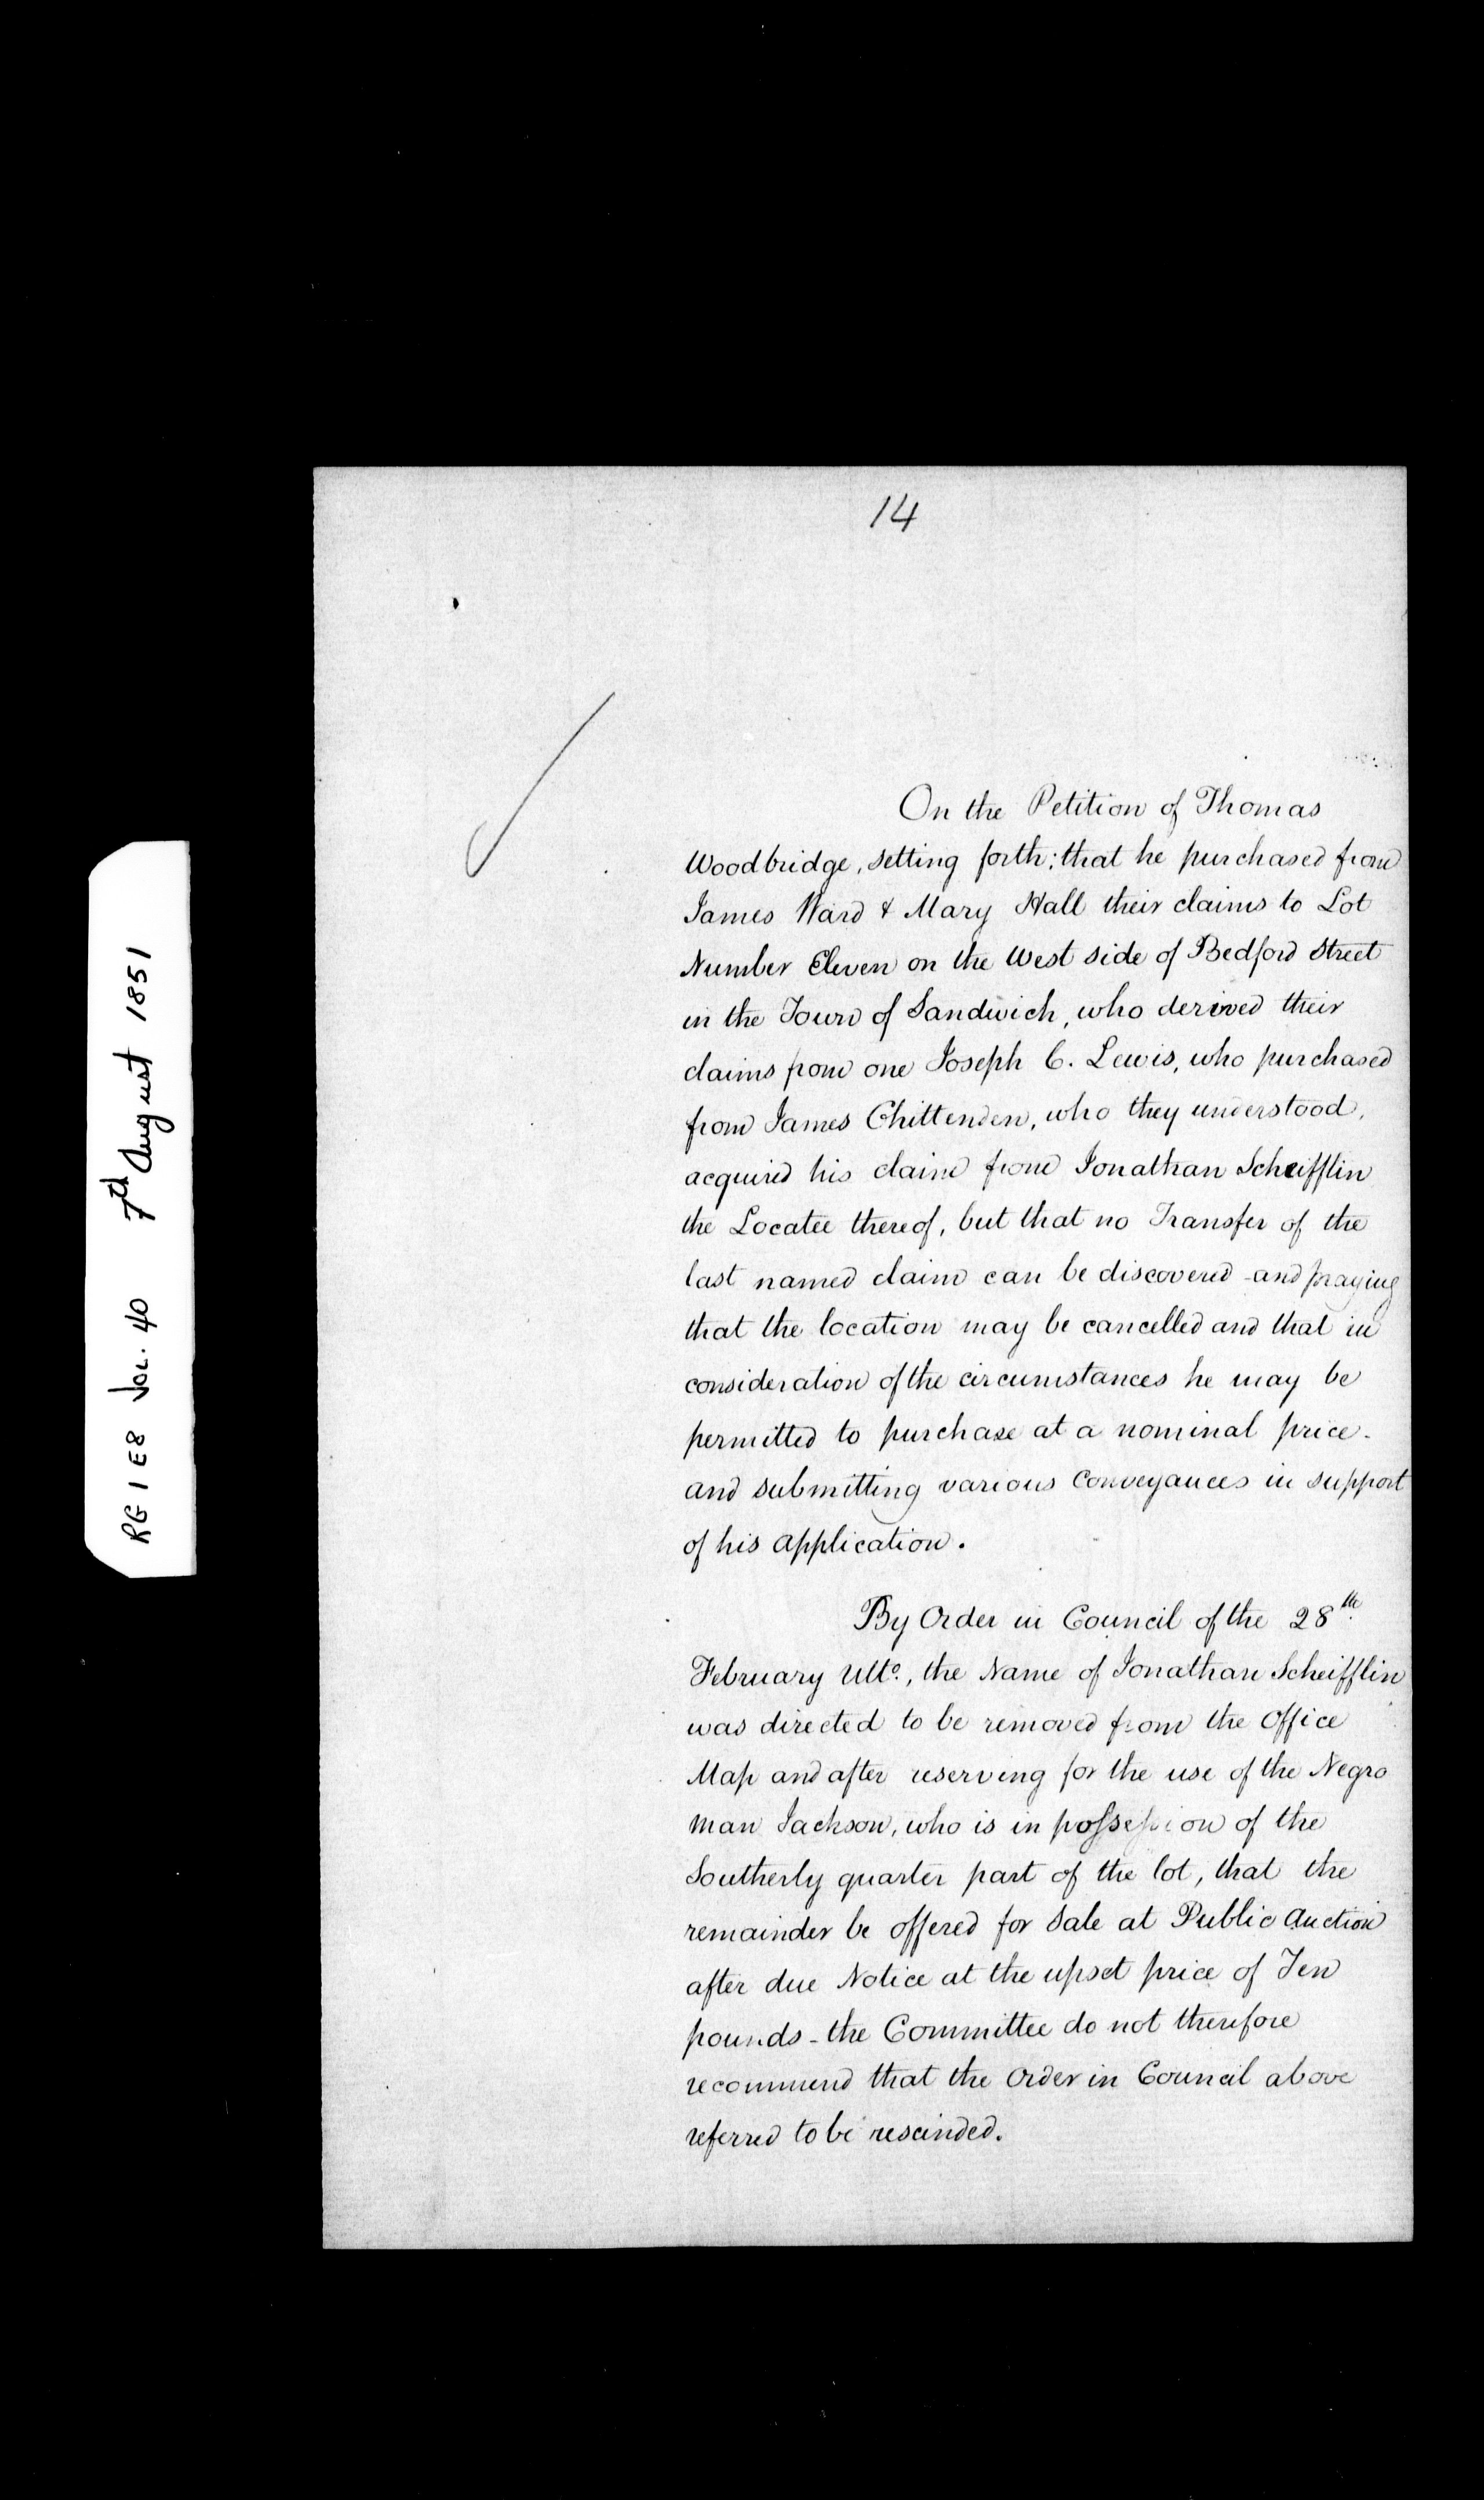 14
RG 1 E8 Vol. 40 7th August 1851
On the Petition of Thomas
Woodbridge, setting forth; that he purchased from
James Ward & Mary Hall their claims to Lot
Number Eleven on the West side of Bedford Street
in the Town of Sandwich, who derived their
claims from one Joseph C. Lewis, who purchased
from James Chittenden, who they understood,
acquired his claim from Jonathan Scheifflin
the Locatee thereof, but that no Transfer of the
last named claim can be discovered - and praying
that the location may be cancelled and that in
consideration of the circumstances he may be
permitted to purchase at a nominal price -
and submitting various Conveyances in support
of his application.
By Order in Council of the 28th
February Ulto., the Name of Jonathan Scheifflin
was directed to be removed from the Office
Map and after reserving for the use of the Negro
man Jackson, who is in possession of the
Southerly quarter part of the lot, that the
remainder be offered for Sale at Public Auction
after due Notice at the upset price of Ten
pounds - the Committee do not therefore
recommend that the Order in Council above
referred to be rescinded.